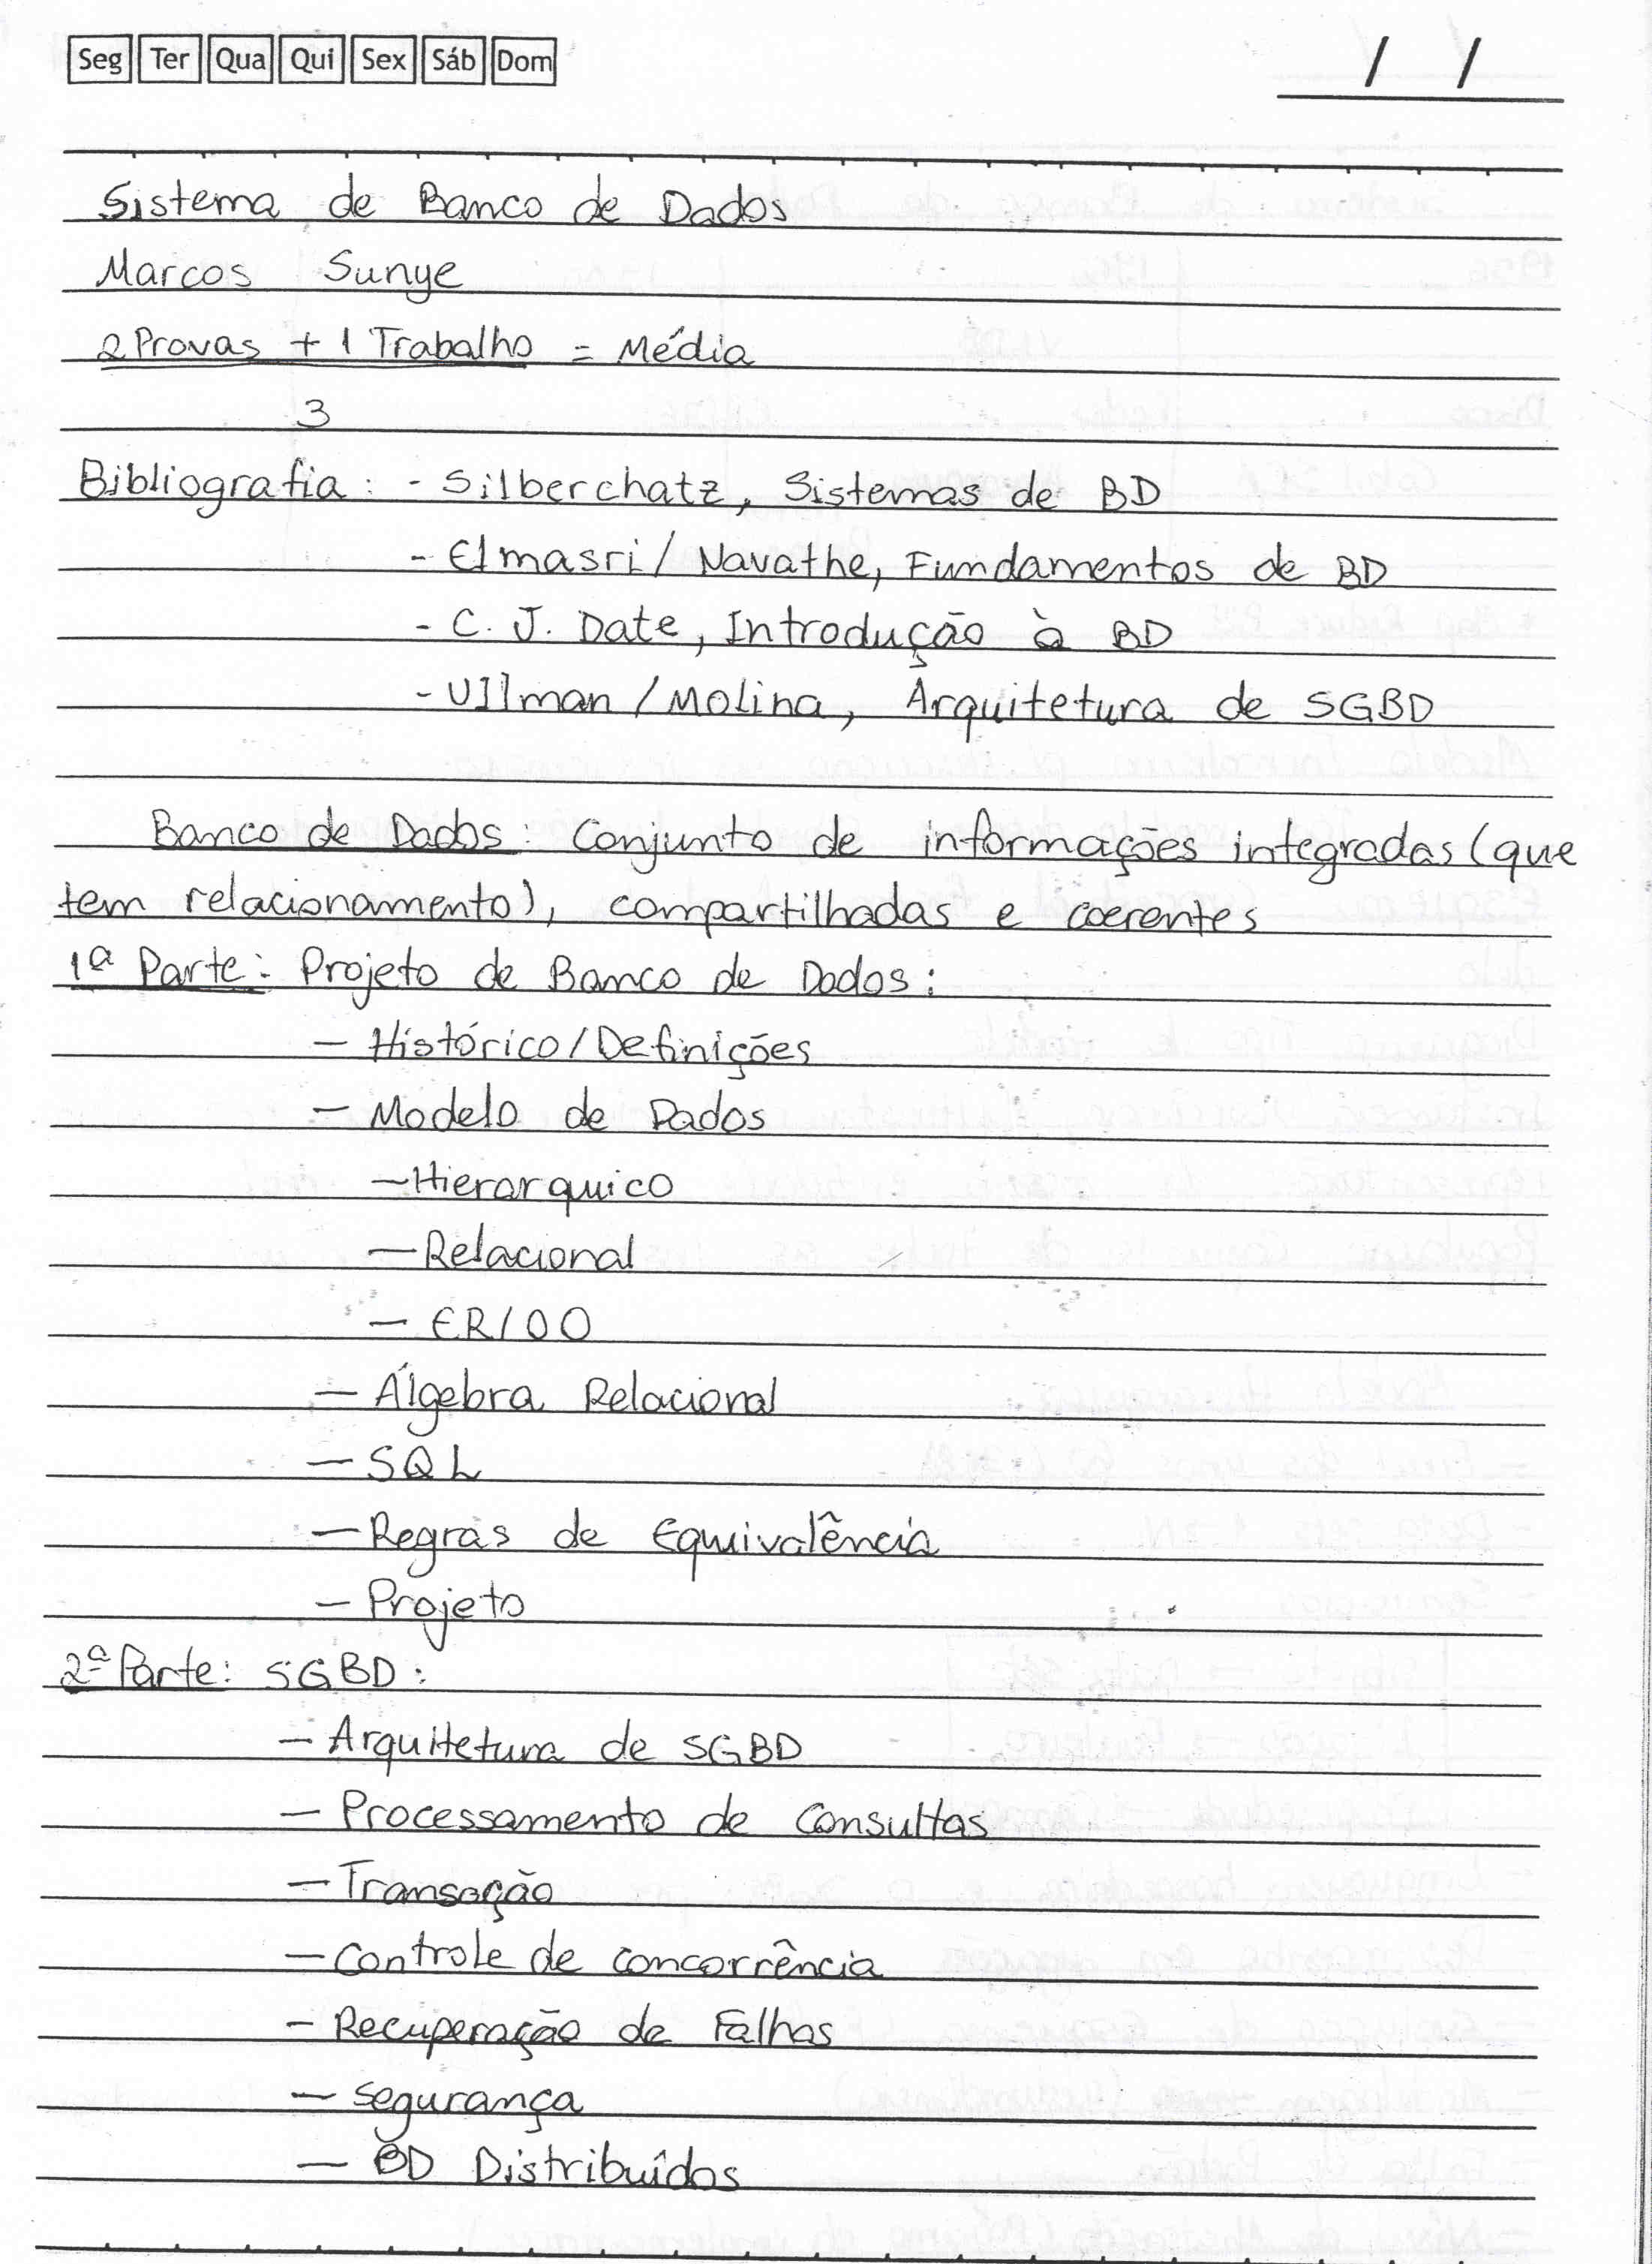 Seg Ter Qua Qui Sex Sáb Dom / /
Sistema de Banco de Dados
Marcos Sunye
2 Provas + 1 Trabalho = Média
3
Bibliografia: - Silberchatz, Sistemas de BD
- Elmasri / Navathe, Fundamentos de BD
- C. J. Date, Introdução à BD
- Ullman / Molina, Arquitetura de SGBD
Banco de Dados: Conjunto de informações integradas (que
tem relacionamento), compartilhadas e coerentes
1ª Parte: Projeto de Banco de Dados:
- Histórico / Definições
- Modelo de Dados
- Hierarquico
- Relacional
- ER/OO
- Álgebra Relacional
- SQL
- Regras de Equivalência
- Projeto
2ª Parte: SGBD:
- Arquitetura de SGBD
- Processamento de Consultas
- Transação
- Controle de concorrência
- Recuperação de Falhas
- Segurança
- BD Distribuídos